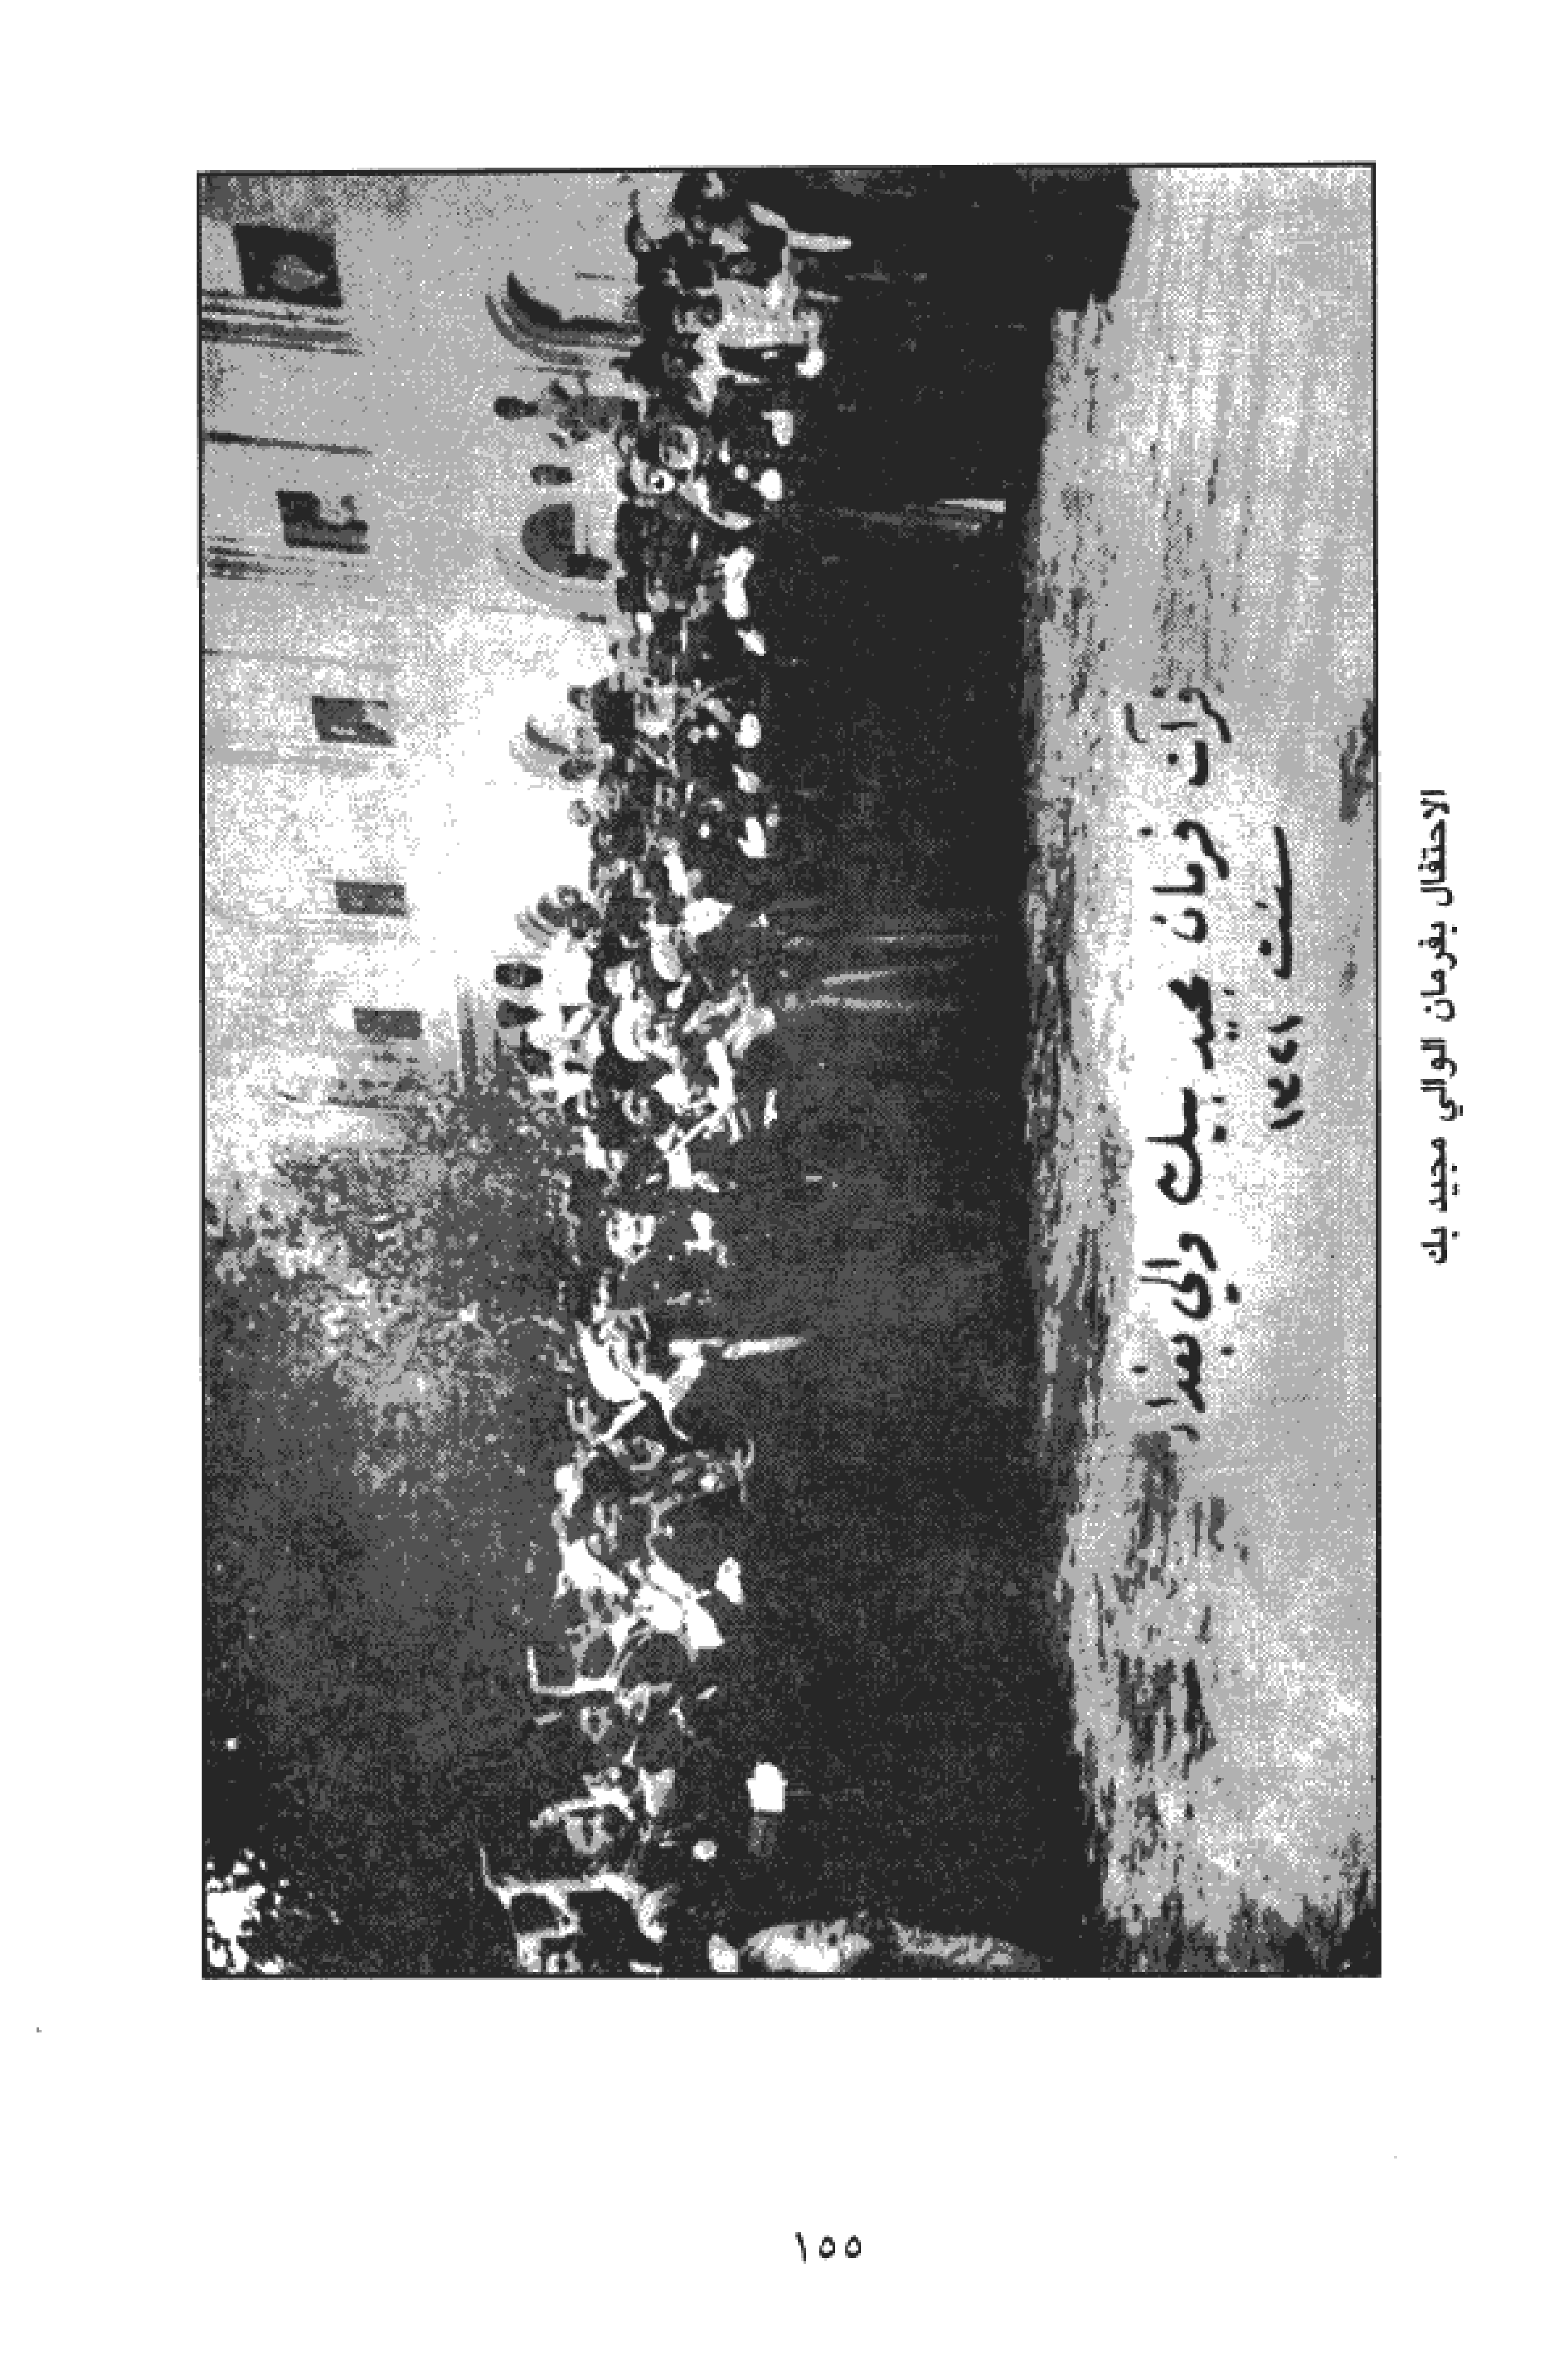 قرآت فرمان مجيد بيك والي بغداد
سنت ١٣٢١
الاحتفال بفرمان الوالي مجيد بك
١٥٥